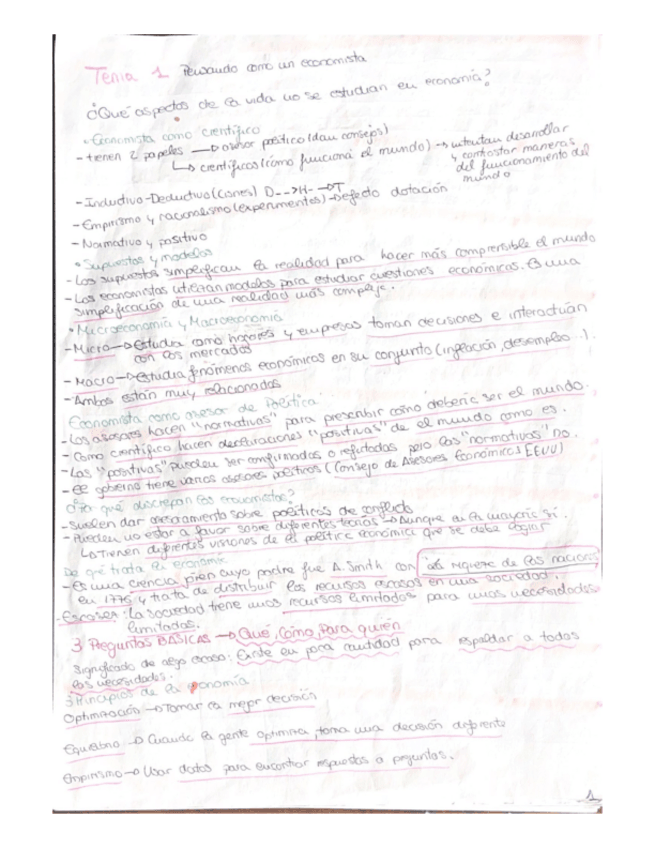 Tema 1 Pensando como un economista
¿Qué aspectos de la vida no se estudian en economía?
• Economista como científico
- tienen 2 papeles → asesor político (dan consejos)
↳ científicos (cómo funciona el mundo) → intentan desarrollar
y contrastar maneras
del funcionamiento del
mundo
- Inductivo-Deductivo (cisnes) D-->H-→T
- Empirismo y racionalismo (experimentos) → Defecto dotación
- Normativo y positivo
• Supuestos y modelos
- Los supuestos simplifican la realidad para hacer más comprensible el mundo
- Los economistas utilizan modelos para estudiar cuestiones económicas. Es una
simplificación de una realidad más compleja.
• Microeconomía y Macroeconomía
- Micro → Estudia como hogares y empresas toman decisiones e interactúan
con los mercados
- Macro → Estudia fenómenos económicos en su conjunto (inflación, desempleo...).
- Ambas están muy relacionadas
Economista como asesor de Política
- Los asesores hacen "normativas" para prescribir como debería ser el mundo.
- Como científico hacen declaraciones "positivas" de el mundo como es.
- Las "positivas" pueden ser confirmadas o refutadas pero las "normativas" NO.
- El gobierno tiene varios asesores políticos (Consejo de Asesores Económicos EEUU)
¿Por qué discrepan los economistas?
- Suelen dar asesoramiento sobre políticas de conflicto
- Pueden no estar a favor sobre diferentes teorías → Aunque en la mayoría sí.
↳ Tienen diferentes visiones de el política económica que se debe elegir
De qué trata la economía
- Es una ciencia, cuyo padre fue A. Smith con "la riqueza de las naciones"
en 1776 y trata de distribuir los recursos escasos en una sociedad.
- Escasez: la sociedad tiene unos recursos limitados para unas necesidades
ilimitadas.
3 Preguntas BÁSICAS → Qué, Cómo, Para quién
Significado de algo escaso: Existe en poca cantidad para respaldar a todos
las necesidades.
3 Principios de la economía
Optimización → Tomar la mejor decisión
Equilibrio → Cuando la gente optimiza, toma una decisión diferente
Empirismo → Usar datos para encontrar respuestas a preguntas.
1